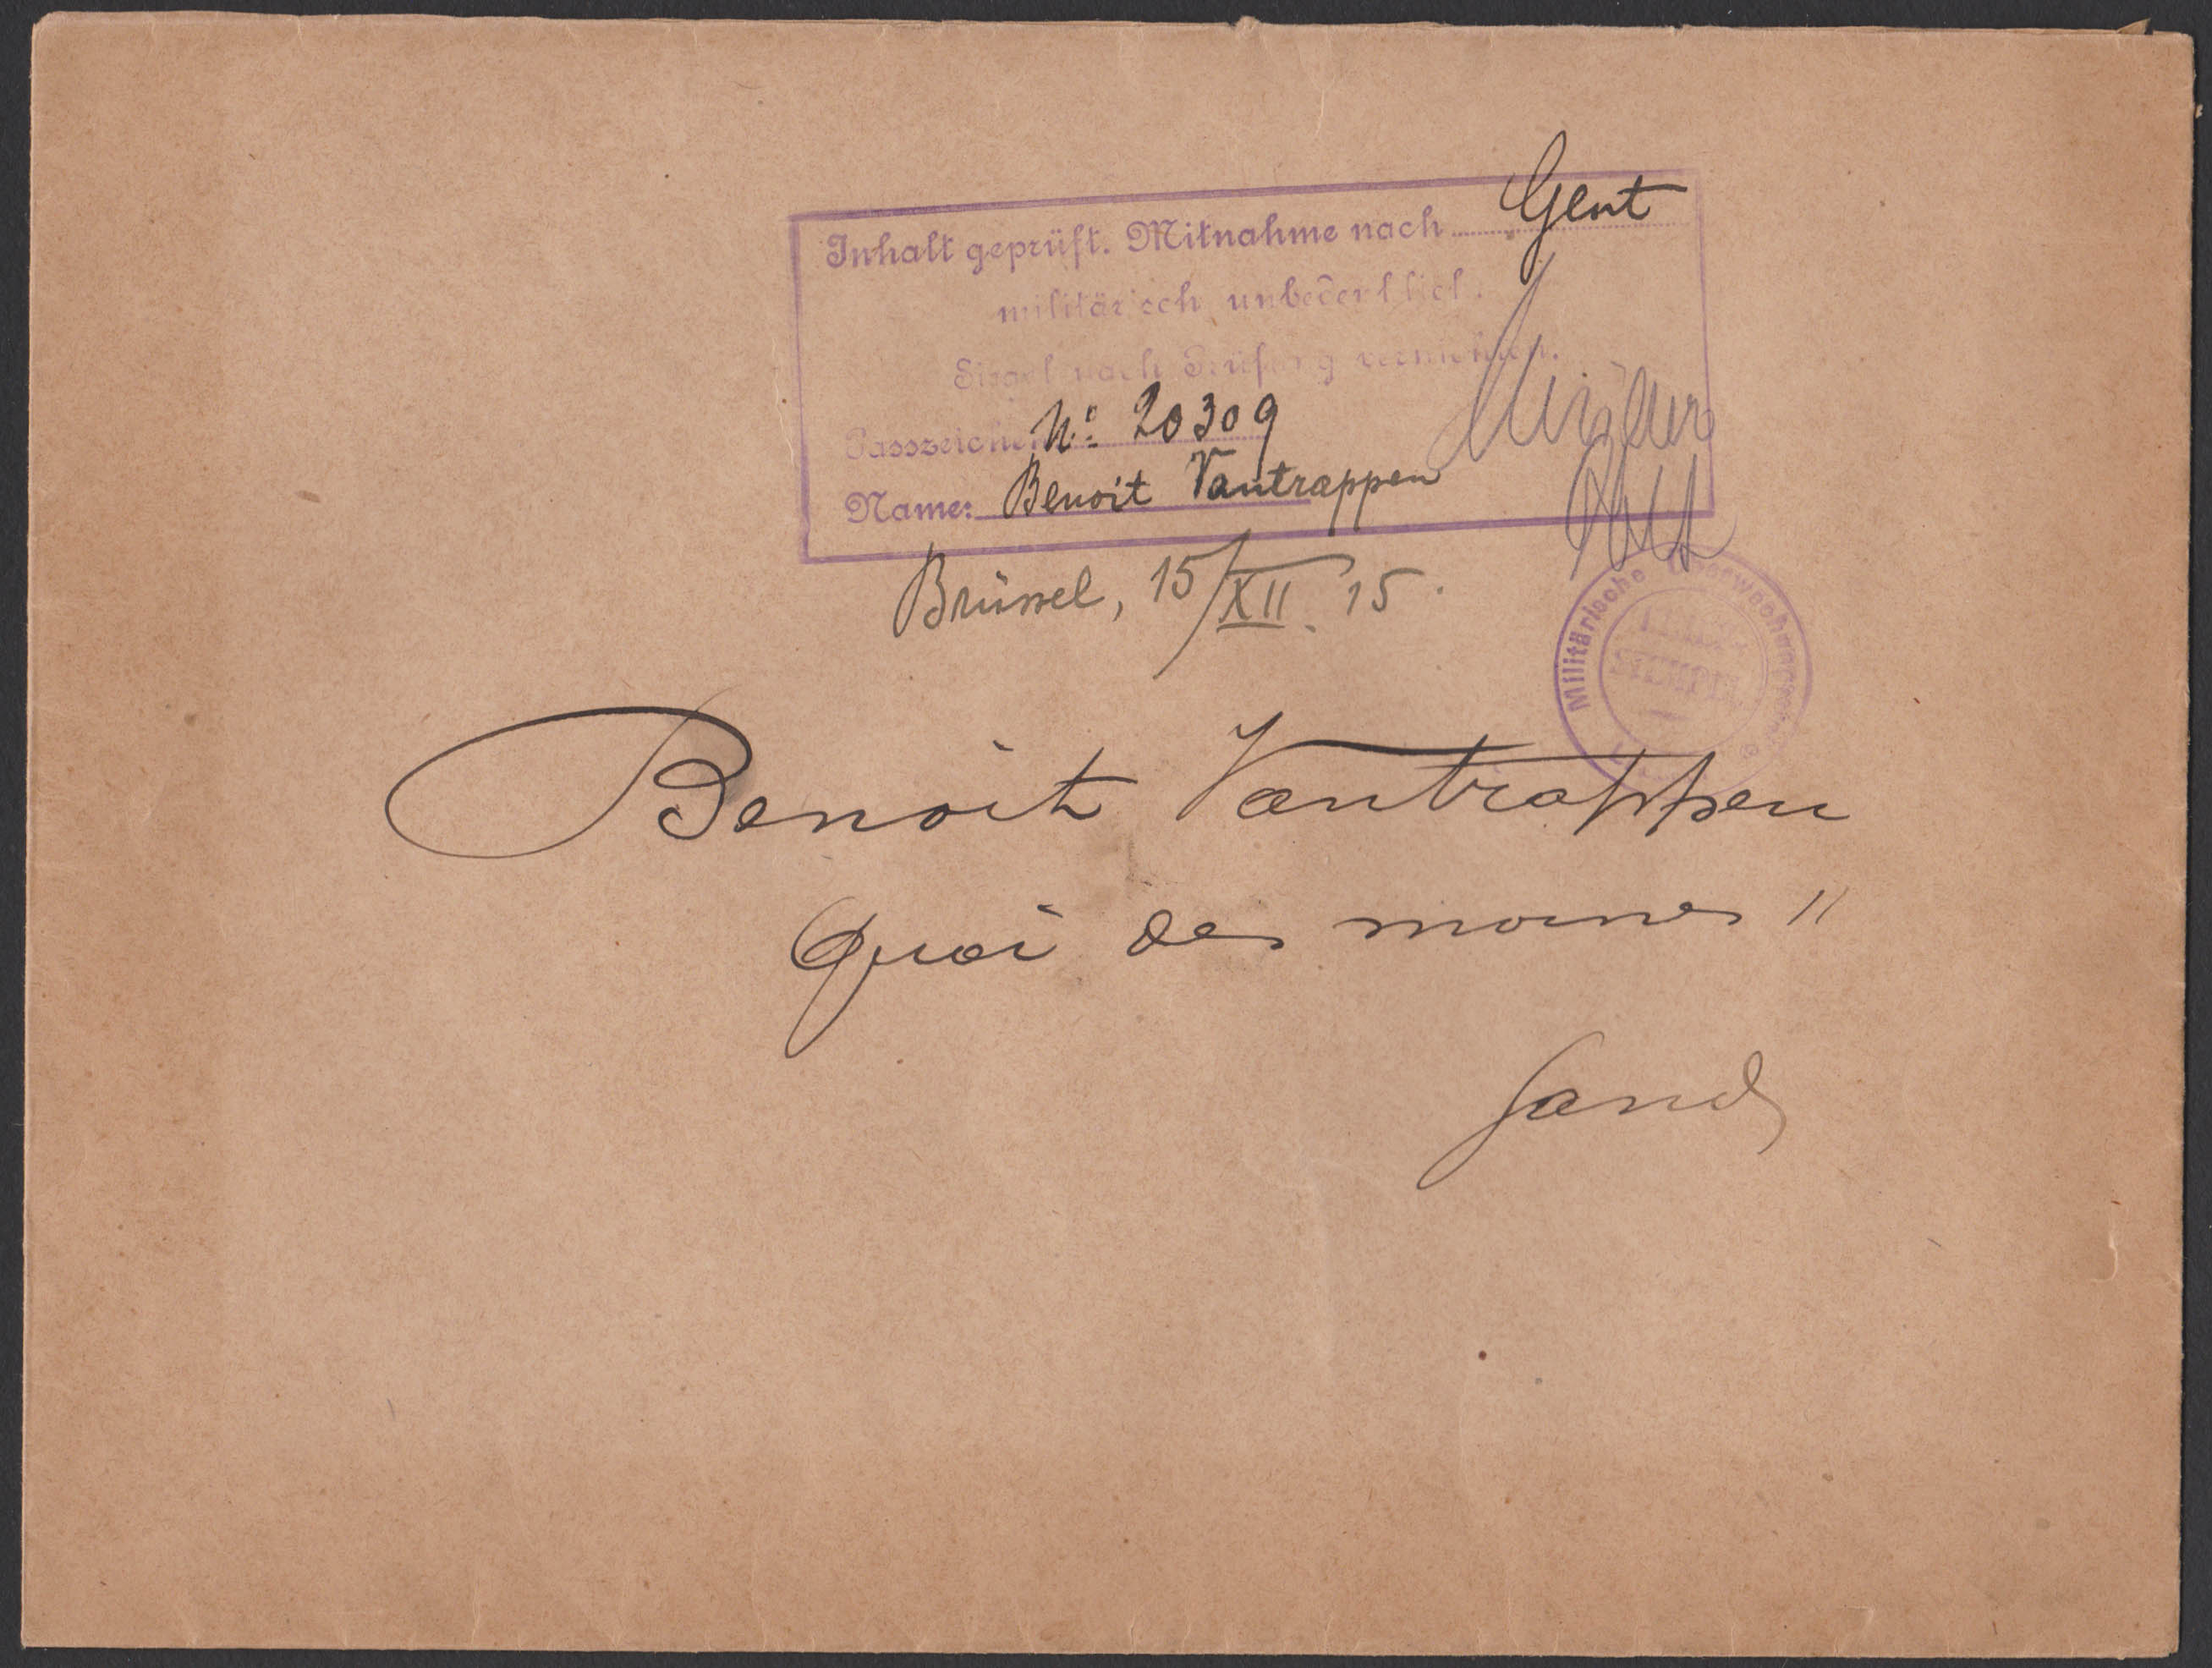 Inhalt geprüft. Mitnahme nach Gent
militärisch unbedenklich.
Siegel nach Prüfung vernichten.
Passzeichen No: 20309
Name: Benoit Vantrappen
Brüssel, 15/XII. 15.
Militärische
Benoit Vantrappen
Quai des moines 11
Gand